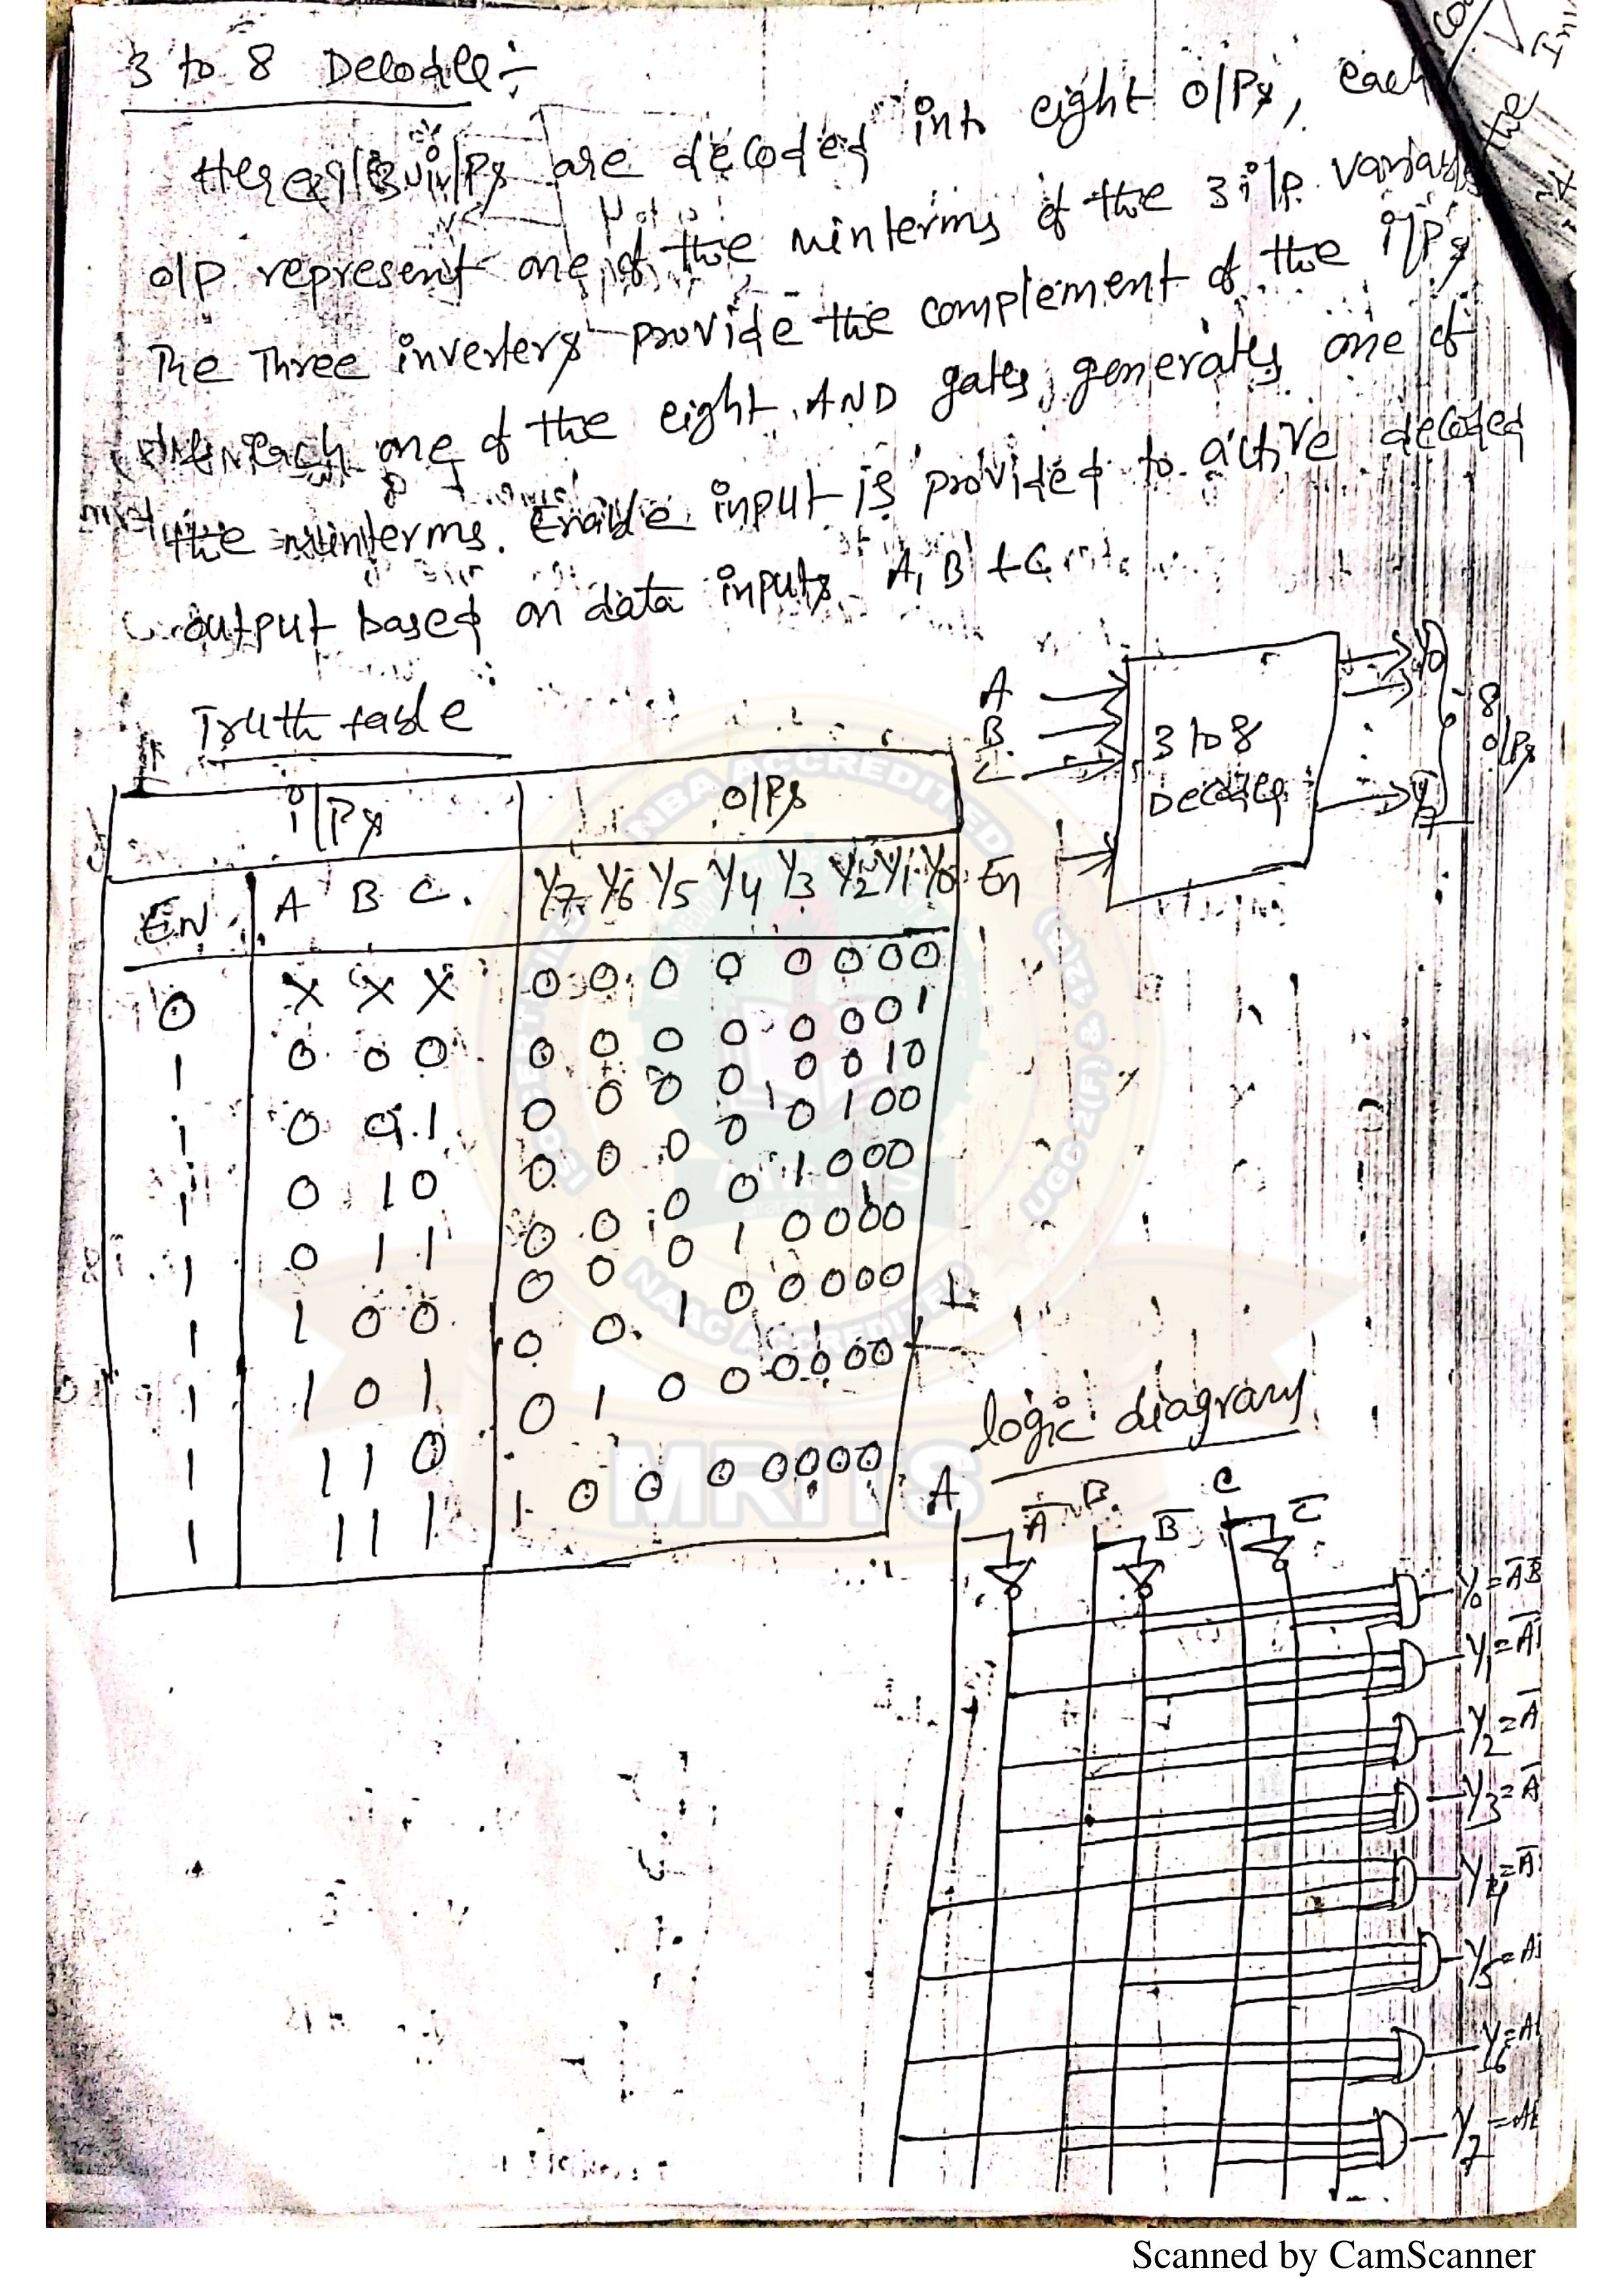 3 to 8 Decoder :-
Here 3 i/Ps are decoded into eight o/Ps, each
o/p represent one of the minterms of the 3 i/p variables
The Three inverters provide the complement of the i/Ps
each one of the eight AND gates generates one of
the minterms. Enable input is provided to active decoded
output based on data inputs A, B + C
Truth table
A
B
C
En
3 to 8
Decoder
Y0
Y7
8
o/Ps
i/Ps o/Ps
EN A B C. Y7 Y6 Y5 Y4 Y3 Y2 Y1 Y0
0 X X X 0 0 0 0 0 0 0 0
1 0 0 0 0 0 0 0 0 0 0 1
1 0 0 1 0 0 0 0 0 0 1 0
1 0 1 0 0 0 0 0 0 1 0 0
1 0 1 1 0 0 0 0 1 0 0 0
1 1 0 0 0 0 0 1 0 0 0 0
1 1 0 1 0 0 1 0 0 0 0 0
1 1 1 0 0 1 0 0 0 0 0 0
1 1 1 1 1 0 0 0 0 0 0 0
logic diagram
A A̅ B B̅ C C̅
Y0 = A̅B̅
Y1 = A̅
Y2 = A̅
Y3 = A̅
Y4 = A̅
Y5 = A
Y6 = A
Y7 = A
NBA ACCREDITED
UGC 2(F) & 12(B)
NAAC ACCREDITED
MRITS
the
Scanned by CamScanner